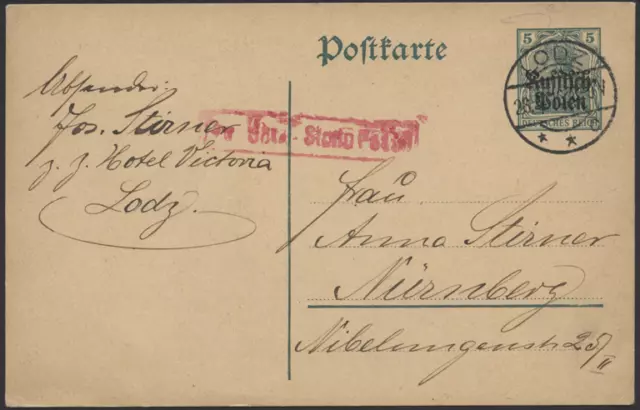 Postkarte
5 5
Russisch-
Polen
DEUTSCHES REICH
LODZ
Absender:
Jos. Stirner
z. Z. Hotel Victoria
Lodz.
Frau
Anna Stirner
Nürnberg
Nibelungenstr 25/II